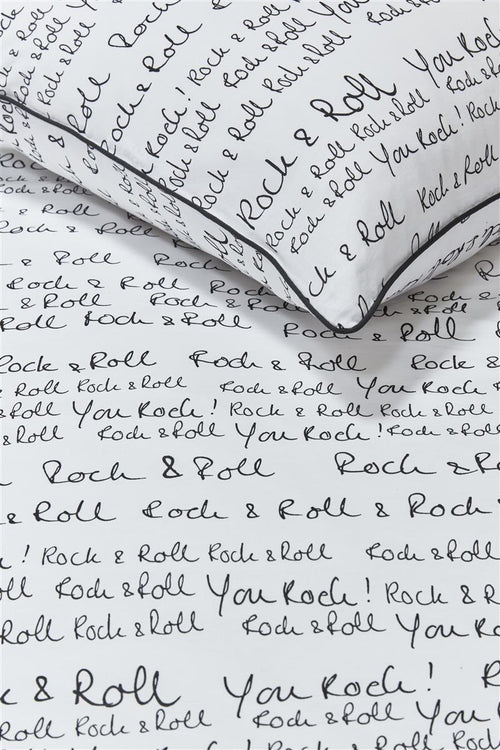 Rock & Roll You Rock
Rock & Roll Rock & Roll Rock & Roll
Rock & Roll You Rock
Rock & Roll Rock & Roll
Rock & Roll You Rock!
Rock & Roll Rock & Roll
Rock & Roll
Rock & Roll
Rock & Roll Rock
Rock & Roll Rock & Roll
& Roll Rock & Roll Rock & Roll
Rock & Roll Rock & Roll Rock &
Roll Rock & Roll Rock & Roll You Rock
& Roll You Rock! Rock & Roll Rock & Roll
& Roll Rock & Roll You Rock! Rock & Roll
Rock & Roll Rock & R
& Roll Rock & Roll & Rock
! Rock & Roll Rock & Roll Rock & Roll
ll Rock & Roll You Rock! Rock & R
Roll Rock & Roll Rock & Roll You R
& Roll You Rock! R
Roll Rock & Roll Rock & Roll You